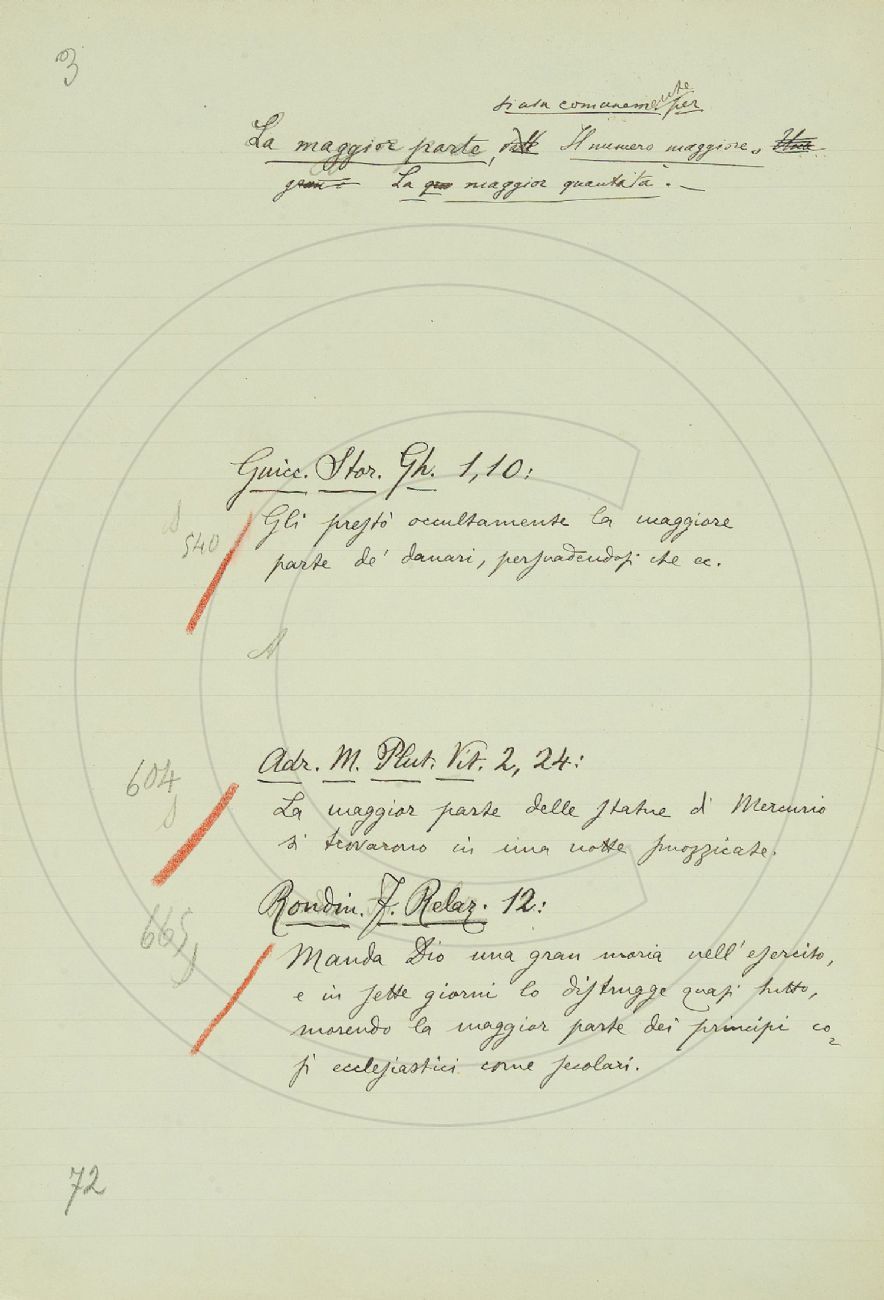 3
si usa comunemente per
La maggior parte, Il numero maggiore.
La maggior quantità. —
Guicc. Stor. Gh. 1, 10:
Gli prestò occultamente la maggiore
540
parte de' danari, persuadendosi che ec.
A
Adr. M. Plut. Vit. 2, 24:
604
La maggior parte delle statue di Mercurio
si trovarono in una notte smozzicate.
Rondin. F. Relaz. 12:
665
Manda Dio una gran moria nell'esercito,
e in sette giorni lo distrugge quasi tutto,
morendo la maggior parte dei principi co=
sì ecclesiastici come secolari.
72